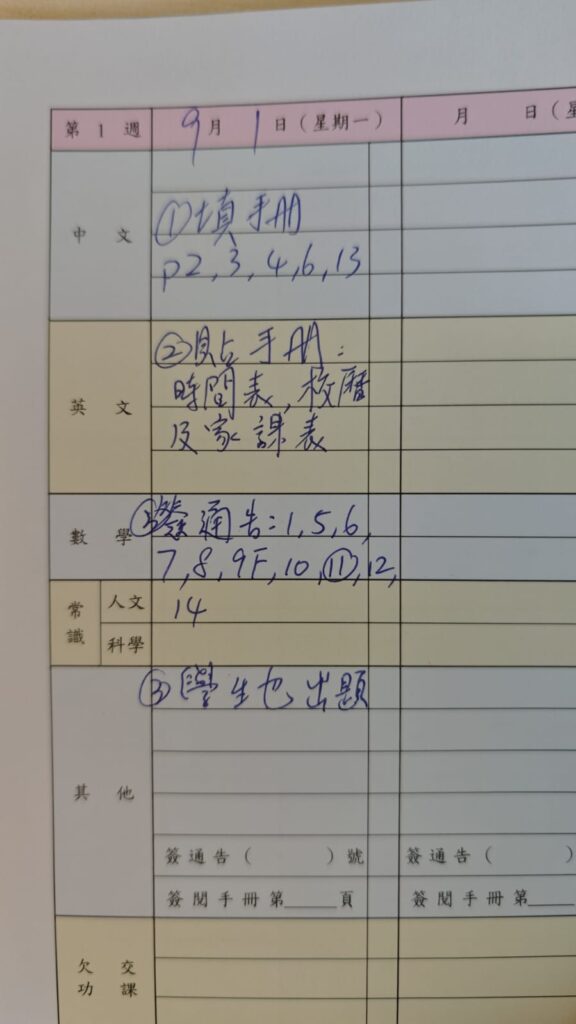 第 1 週
9月 1日(星期一)
月 日(星
中 文
①填手册
p2,3,4,6,13
英 文
②貼手册:
時間表,校曆
及家課表
數 學
③簽通告:1,5,6,
7,8,9F,10,⑪,12,
14
常識
人文
科學
③學生也出題
其 他
簽通告( )號
簽通告( )
簽閱手冊第_____頁
簽閱手冊第____
欠 交
功 課